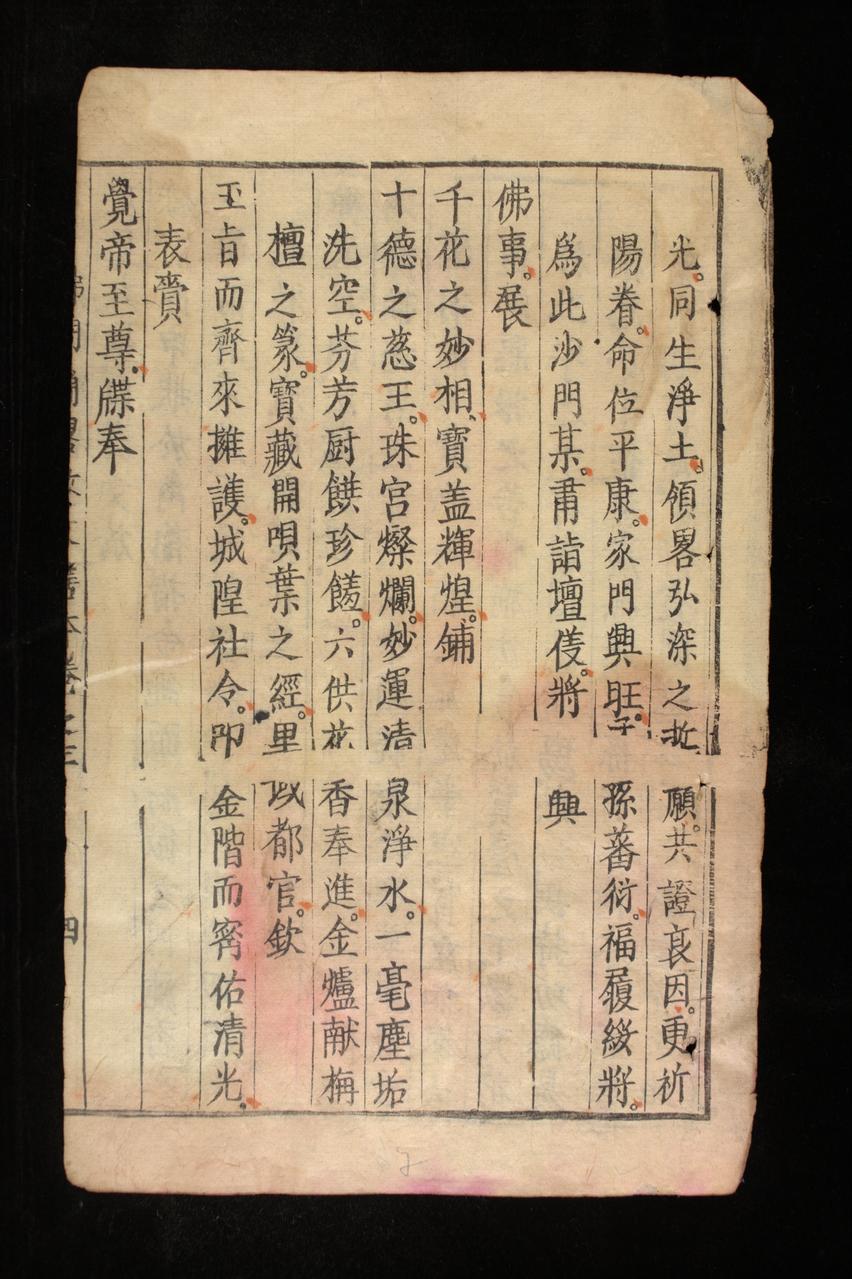 光。同生淨土。領畧弘深之誓願。共證良因。更祈
陽眷。命位平康。家門興旺。子孫蕃衍。福履綏將。
爲此沙門某。肅詣壇𠊓。將興
佛事。展
千花之妙相、寳盖輝煌。鋪
十德之慈王。珠宫燦爛。妙運清泉淨水。一毫塵垢
洗空。芬芳厨饌珍饈。六供花香奉進。金爐献栴
檀之篆。寶藏開唄葉之經。里域都官。欽
玉旨而齊來擁護。城隍社令。叩金階而寗佑清光。
表賷
覺帝至尊。牒奉